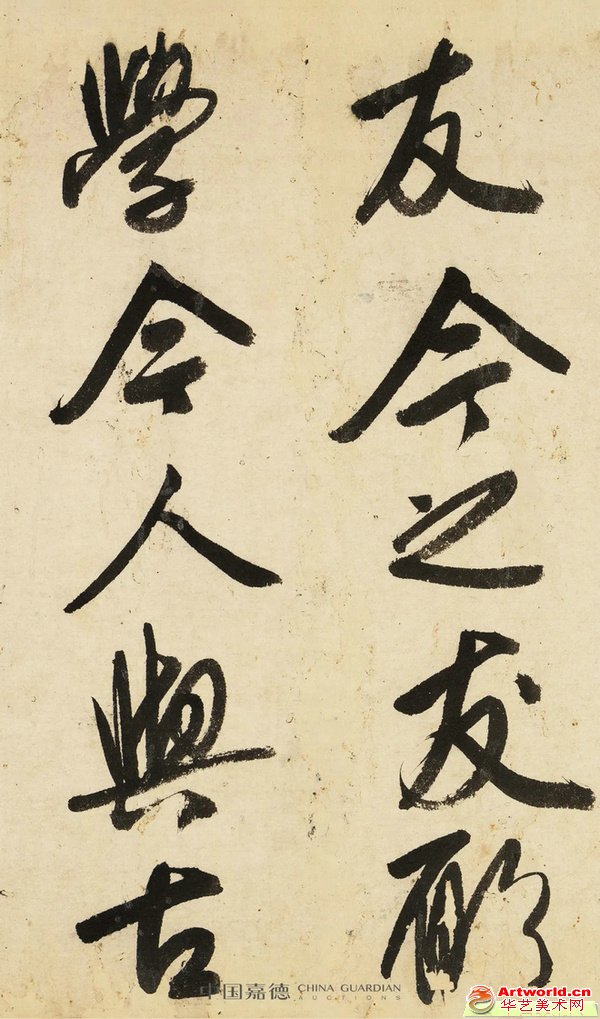 友今之友願
學今人與古
中国嘉德 CHINA GUARDIAN
AUCTIONS
Artworld.cn
华艺美术网